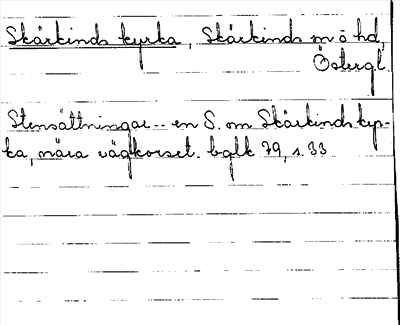 Skärkinds kyrka, Skärkinds sn o hd,
Östergl.
Stensättningar -- en S. om Skärkinds kyr-
ka, nära vägkorset. bglk 79, s. 33